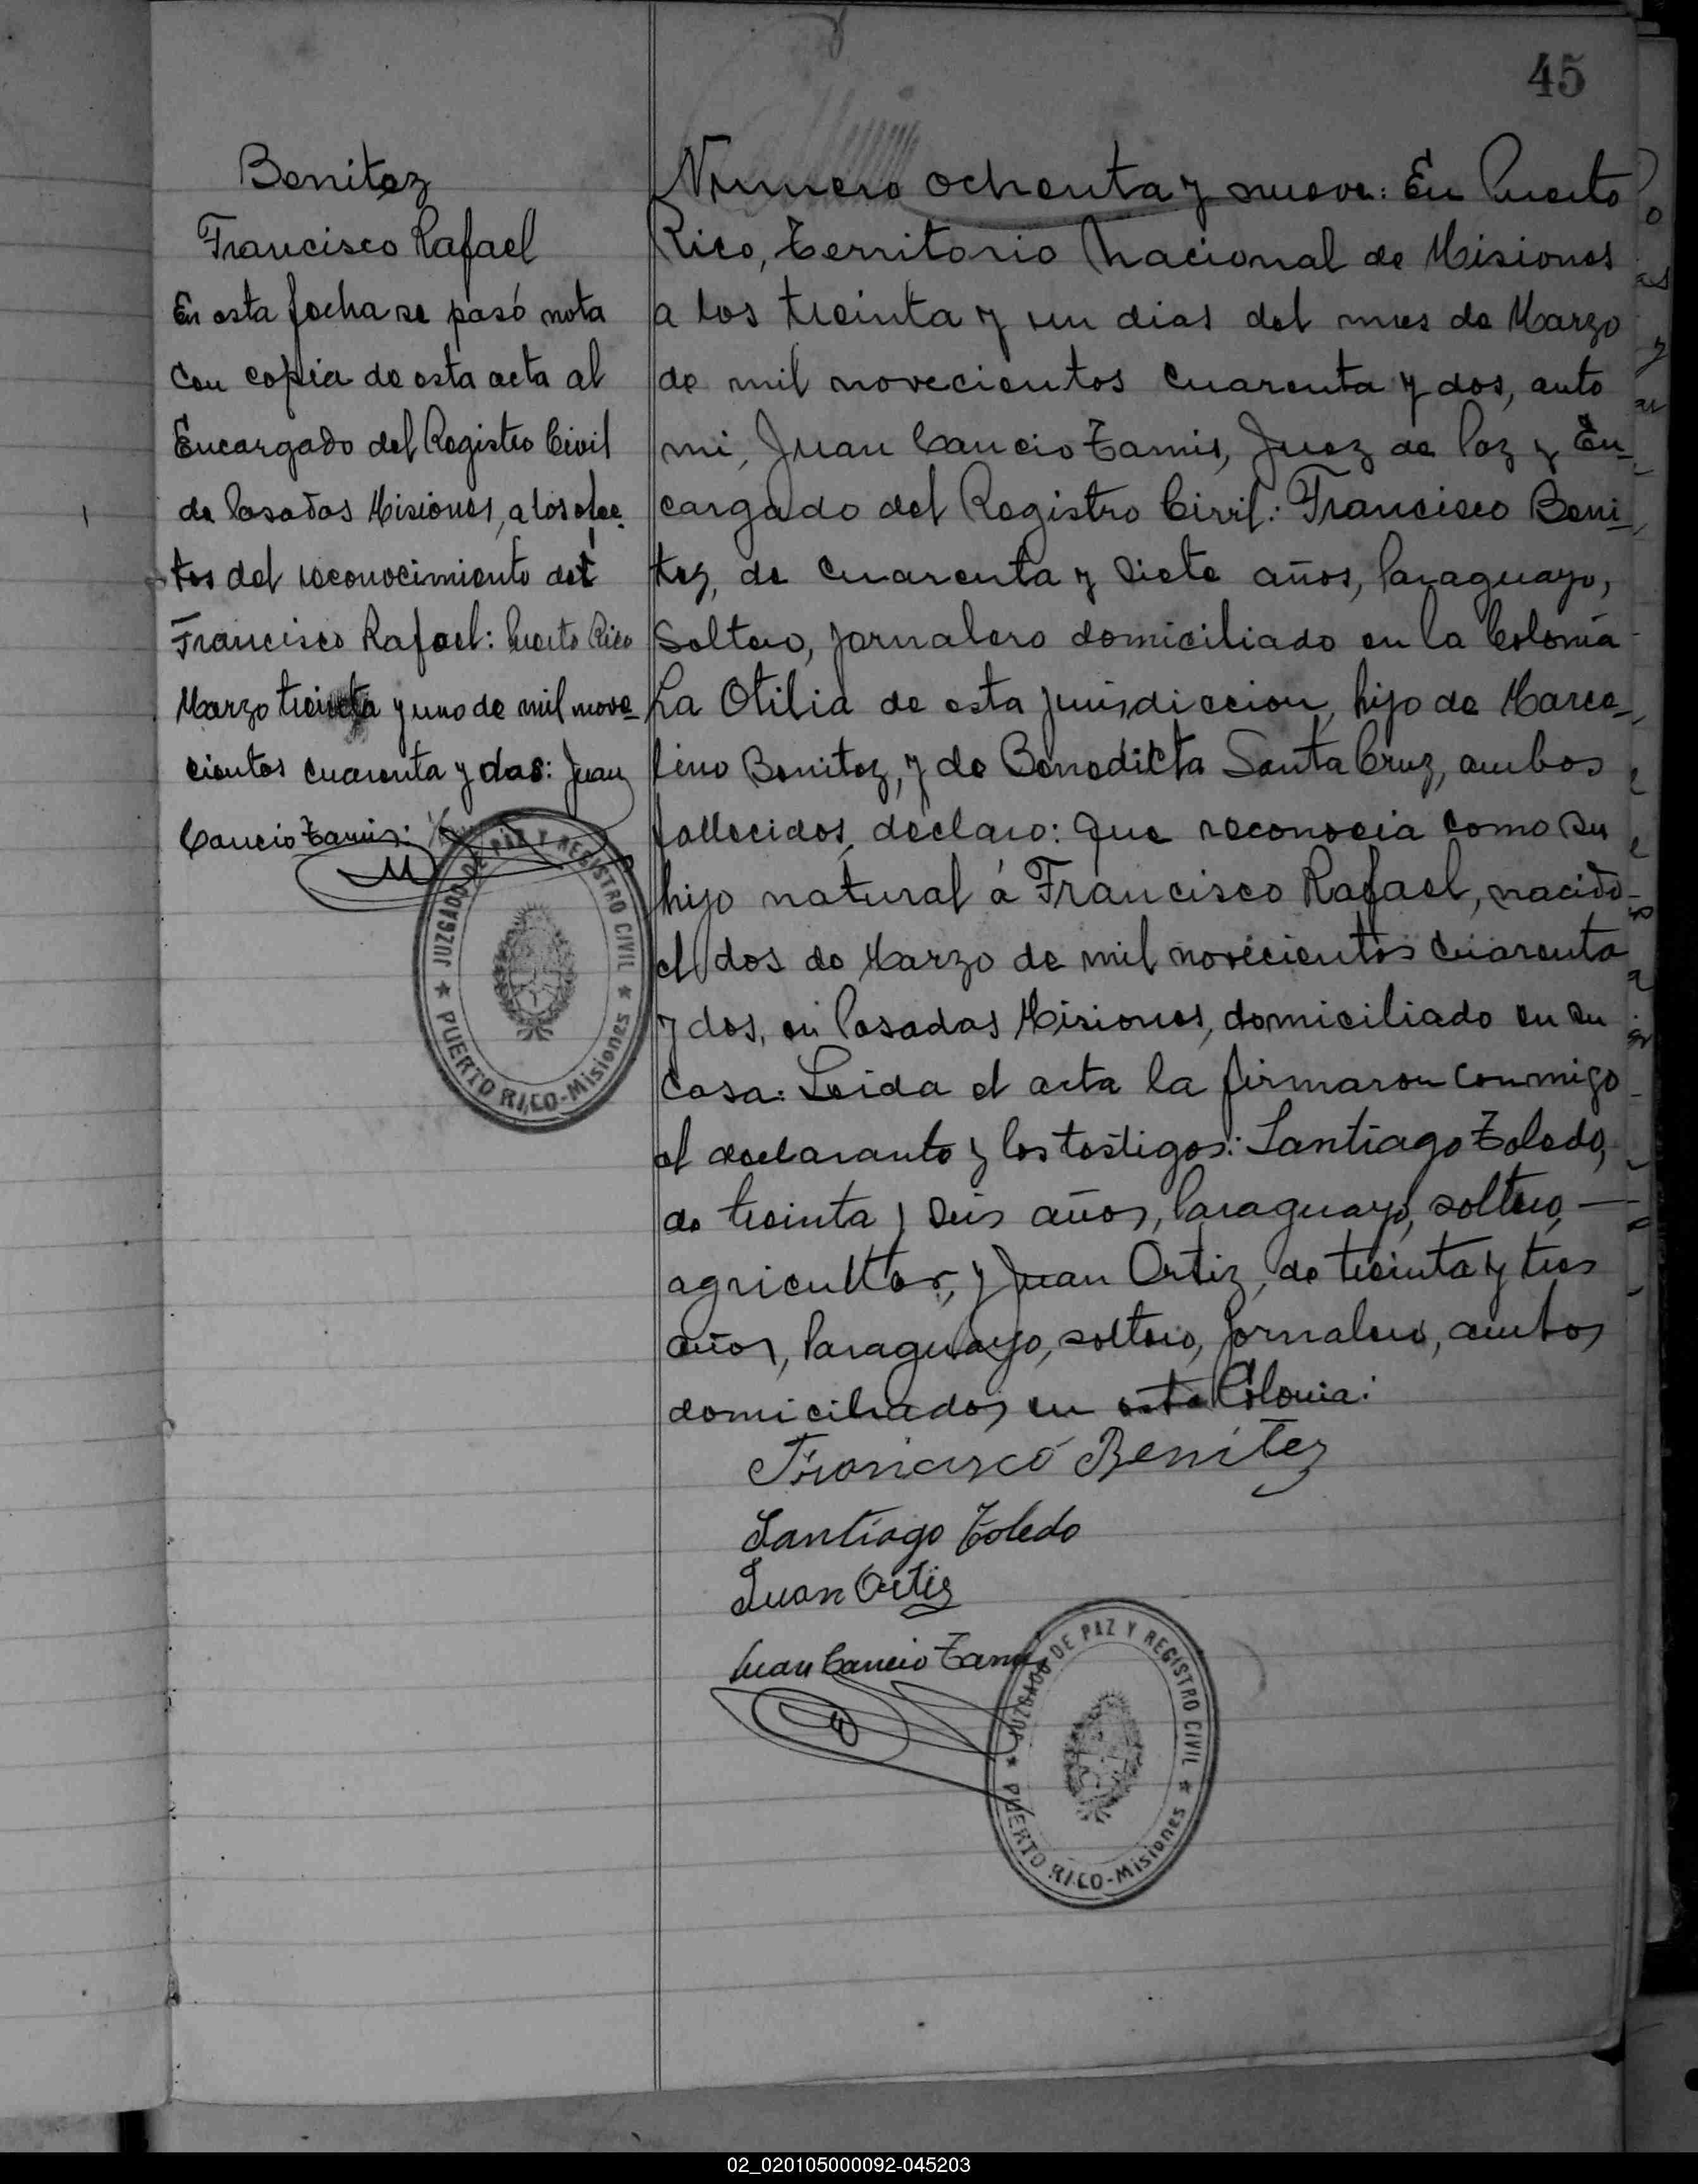 45
Benitez
Francisco Rafael
En esta fecha se pasó nota
con copia de esta acta al
Encargado del Registro Civil
de Posadas Misiones, a los efec
tos del reconocimiento del
Francisco Rafael: Puerto Rico
Marzo treinta y uno de mil nove
cientos cuarenta y dos: Juan
Cancio Tamis:
JUZGADO DE PAZ Y REGISTRO CIVIL
PUERTO RICO-Misiones
Numero ochenta y nueve: En Puerto
Rico, Territorio Nacional de Misiones
a los treinta y un dias del mes de Marzo
de mil novecientos cuarenta y dos, ante
mi, Juan Cancio Tamis, Juez de Paz y En
cargado del Registro Civil: Francisco Beni
tez, de cuarenta y siete años, Paraguayo,
Soltero, jornalero domiciliado en la Colonia
La Otilia de esta jurisdiccion, hijo de Marce
lino Benitez, y de Benedicta Santa Cruz, ambos
fallecidos, declaro: Que reconocia como su
hijo natural á Francisco Rafael, nacido
el dos de Marzo de mil novecientos cuarenta
y dos, en Posadas Misiones, domiciliado en su
casa: Leida el acta la firmaron conmigo
el declarante y los testigos: Santiago Toledo,
de treinta y seis años, Paraguayo, soltero, —
agricultor, y Juan Ortiz, de treinta y tres
años, Paraguayo, soltero, jornalero, ambos
domiciliados en esta Colonia:
Francisco Benítez
Santiago Toledo
Juan Ortiz
Juan Cancio Tamis
JUZGADO DE PAZ Y REGISTRO CIVIL
PUERTO RICO-Misiones
02_020105000092-045203